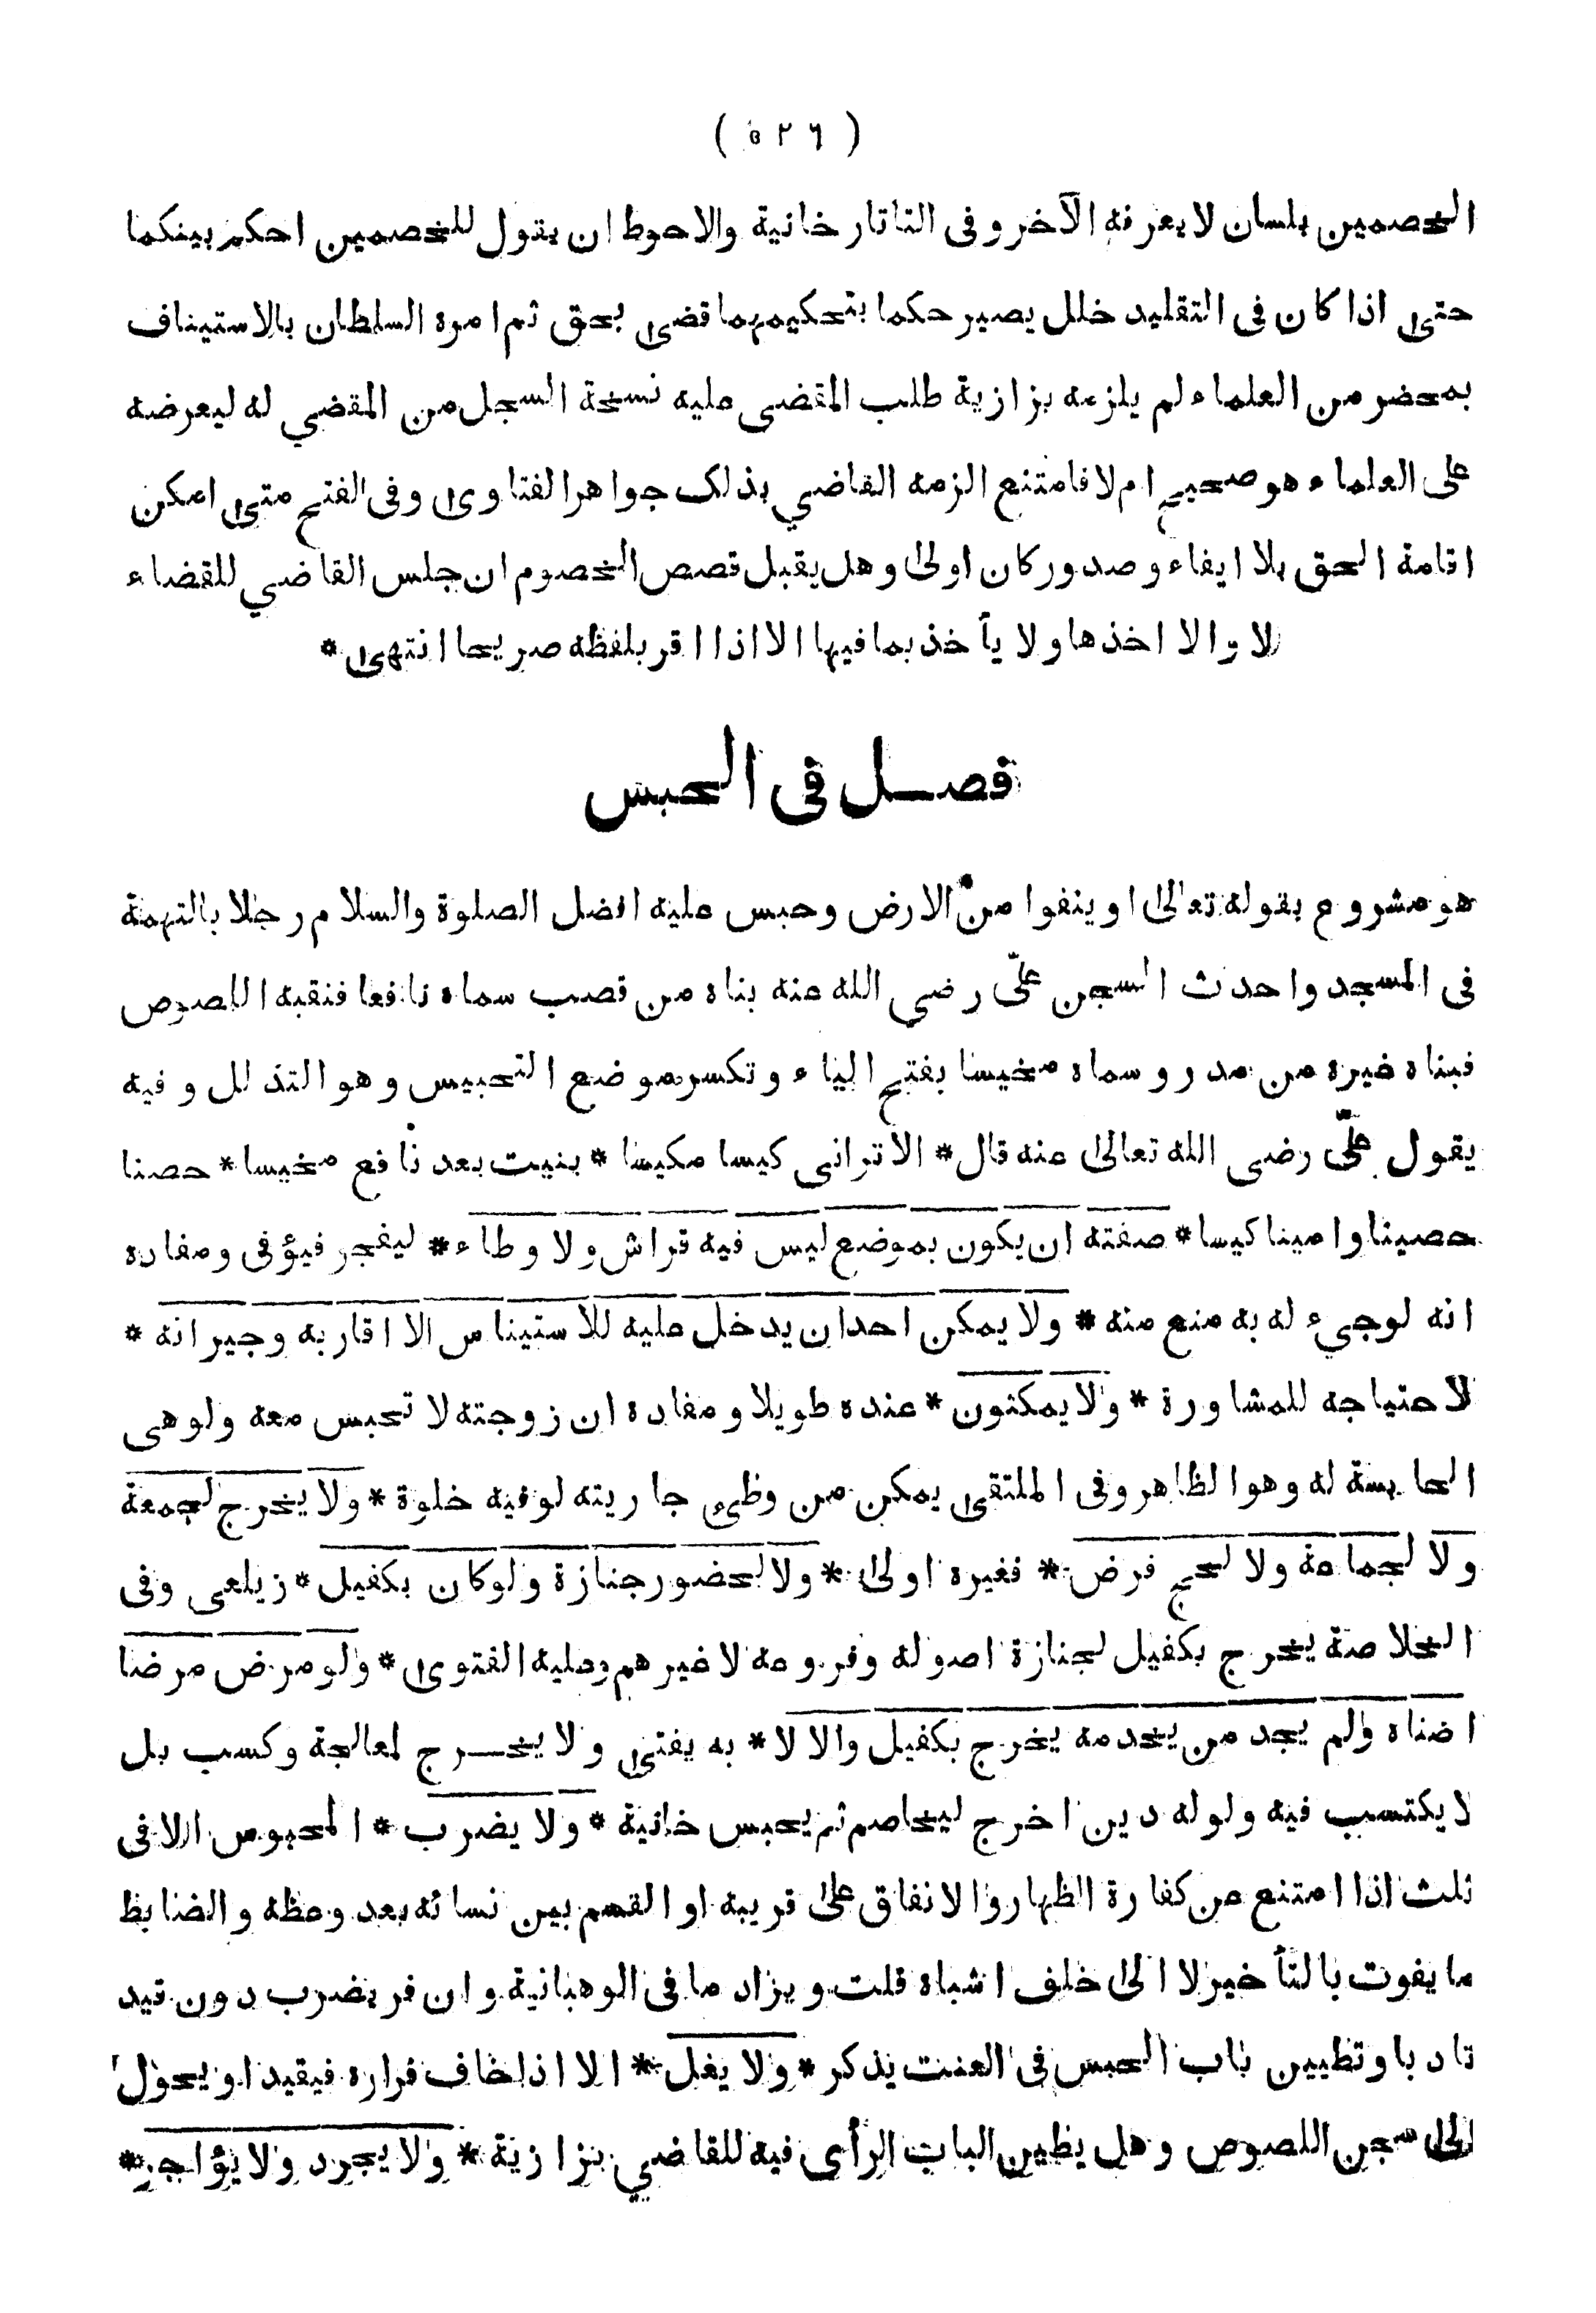 ( ٥٢٦ )
الخصمين بلسان لا يعرفه الآخر وفى التاتار خانية والاحوط ان يقول للخصمين احكم بينكما
حتى اذا كان فى التقليد خلل يصير حكما بتحكيمهما قضى بحق ثم امره السلطان بالاستيناف
بمحضر من العلماء لم يلزمه بزازية طلب المقضى عليه نسخة السجل من المقضي له ليعرضه
على العلماء هو صحيح ام لا فامتنع الزمه القاضي بذلك جواهر الفتاوى وفى الفتح متى امكن
اقامة الحق بلا ايفاء وصدور كان اولى وهل يقبل قصص الخصوم ان جلس القاضي للقضاء
لا والا اخذها ولا يأخذ بما فيها الا اذا اقر بلفظه صريحا انتهى *
فصل فى الحبس
هو مشروع بقوله تعالى او ينفوا من الارض وحبس عليه افضل الصلوة والسلام رجلا بالتهمة
فى المسجد واحدث السجن علىّ رضي الله عنه بناه من قصب سماه نافعا فنقبه اللصوص
فبناه غيره من مدر وسماه مخيسا بفتح الياء وتكسر موضع التحبيس وهو التذلل وفيه
يقول علىّ رضى الله تعالى عنه قال * الا ترانى كيسا مكيسا * بنيت بعد نافع مخيسا * حصنا
حصينا وامينا كيسا * صفته ان يكون بموضع ليس فيه فراش ولا وطاء * ليفجر فيؤفى ومفاده
انه لو جيء له به منع منه * ولا يمكن احدا ن يدخل عليه للاستيناس الا اقاربه وجيرانه *
لاحتياجه للمشاورة * ولا يمكثون * عنده طويلا ومفاده ان زوجته لا تحبس معه ولو هى
الحابسة له وهو الظاهر وفى الملتقى يمكن من وطىء جاريته لو فيه خلوة * ولا يخرج لجمعة
ولا لجماعة ولا لحج فرض * فغيره اولى * ولا لحضور جنازة ولو كان بكفيل * زيلعى وفى
الخلاصة يخرج بكفيل لجنازة اصوله وفروعه لا غيرهم وعليه الفتوى * ولو مرض مرضا
اضناه ولم يجد من يخدمه يخرج بكفيل والا لا * به يفتى ولا يخرج لمعالجة وكسب بل
لا يكتسب فيه ولو له دين اخرج ليخاصم ثم يحبس خانية * ولا يضرب * المحبوس الا فى
ثلث اذا امتنع عن كفارة الظهار والانفاق على قريبه او القسم بين نسائه بعد وعظه والضابط
ما يفوت بالتأخير لا الى خلف اشباه قلت ويزاد ما فى الوهبانية وان فر يضرب دون قيد
تادبا وتطيين باب الحبس فى العنت يذكر * ولا يغل * الا اذا خاف فراره فيقيد او يحول
الى سجن اللصوص وهل يطين الباب الرأى فيه للقاضي بزازية * ولا يجرد ولا يؤاجر *